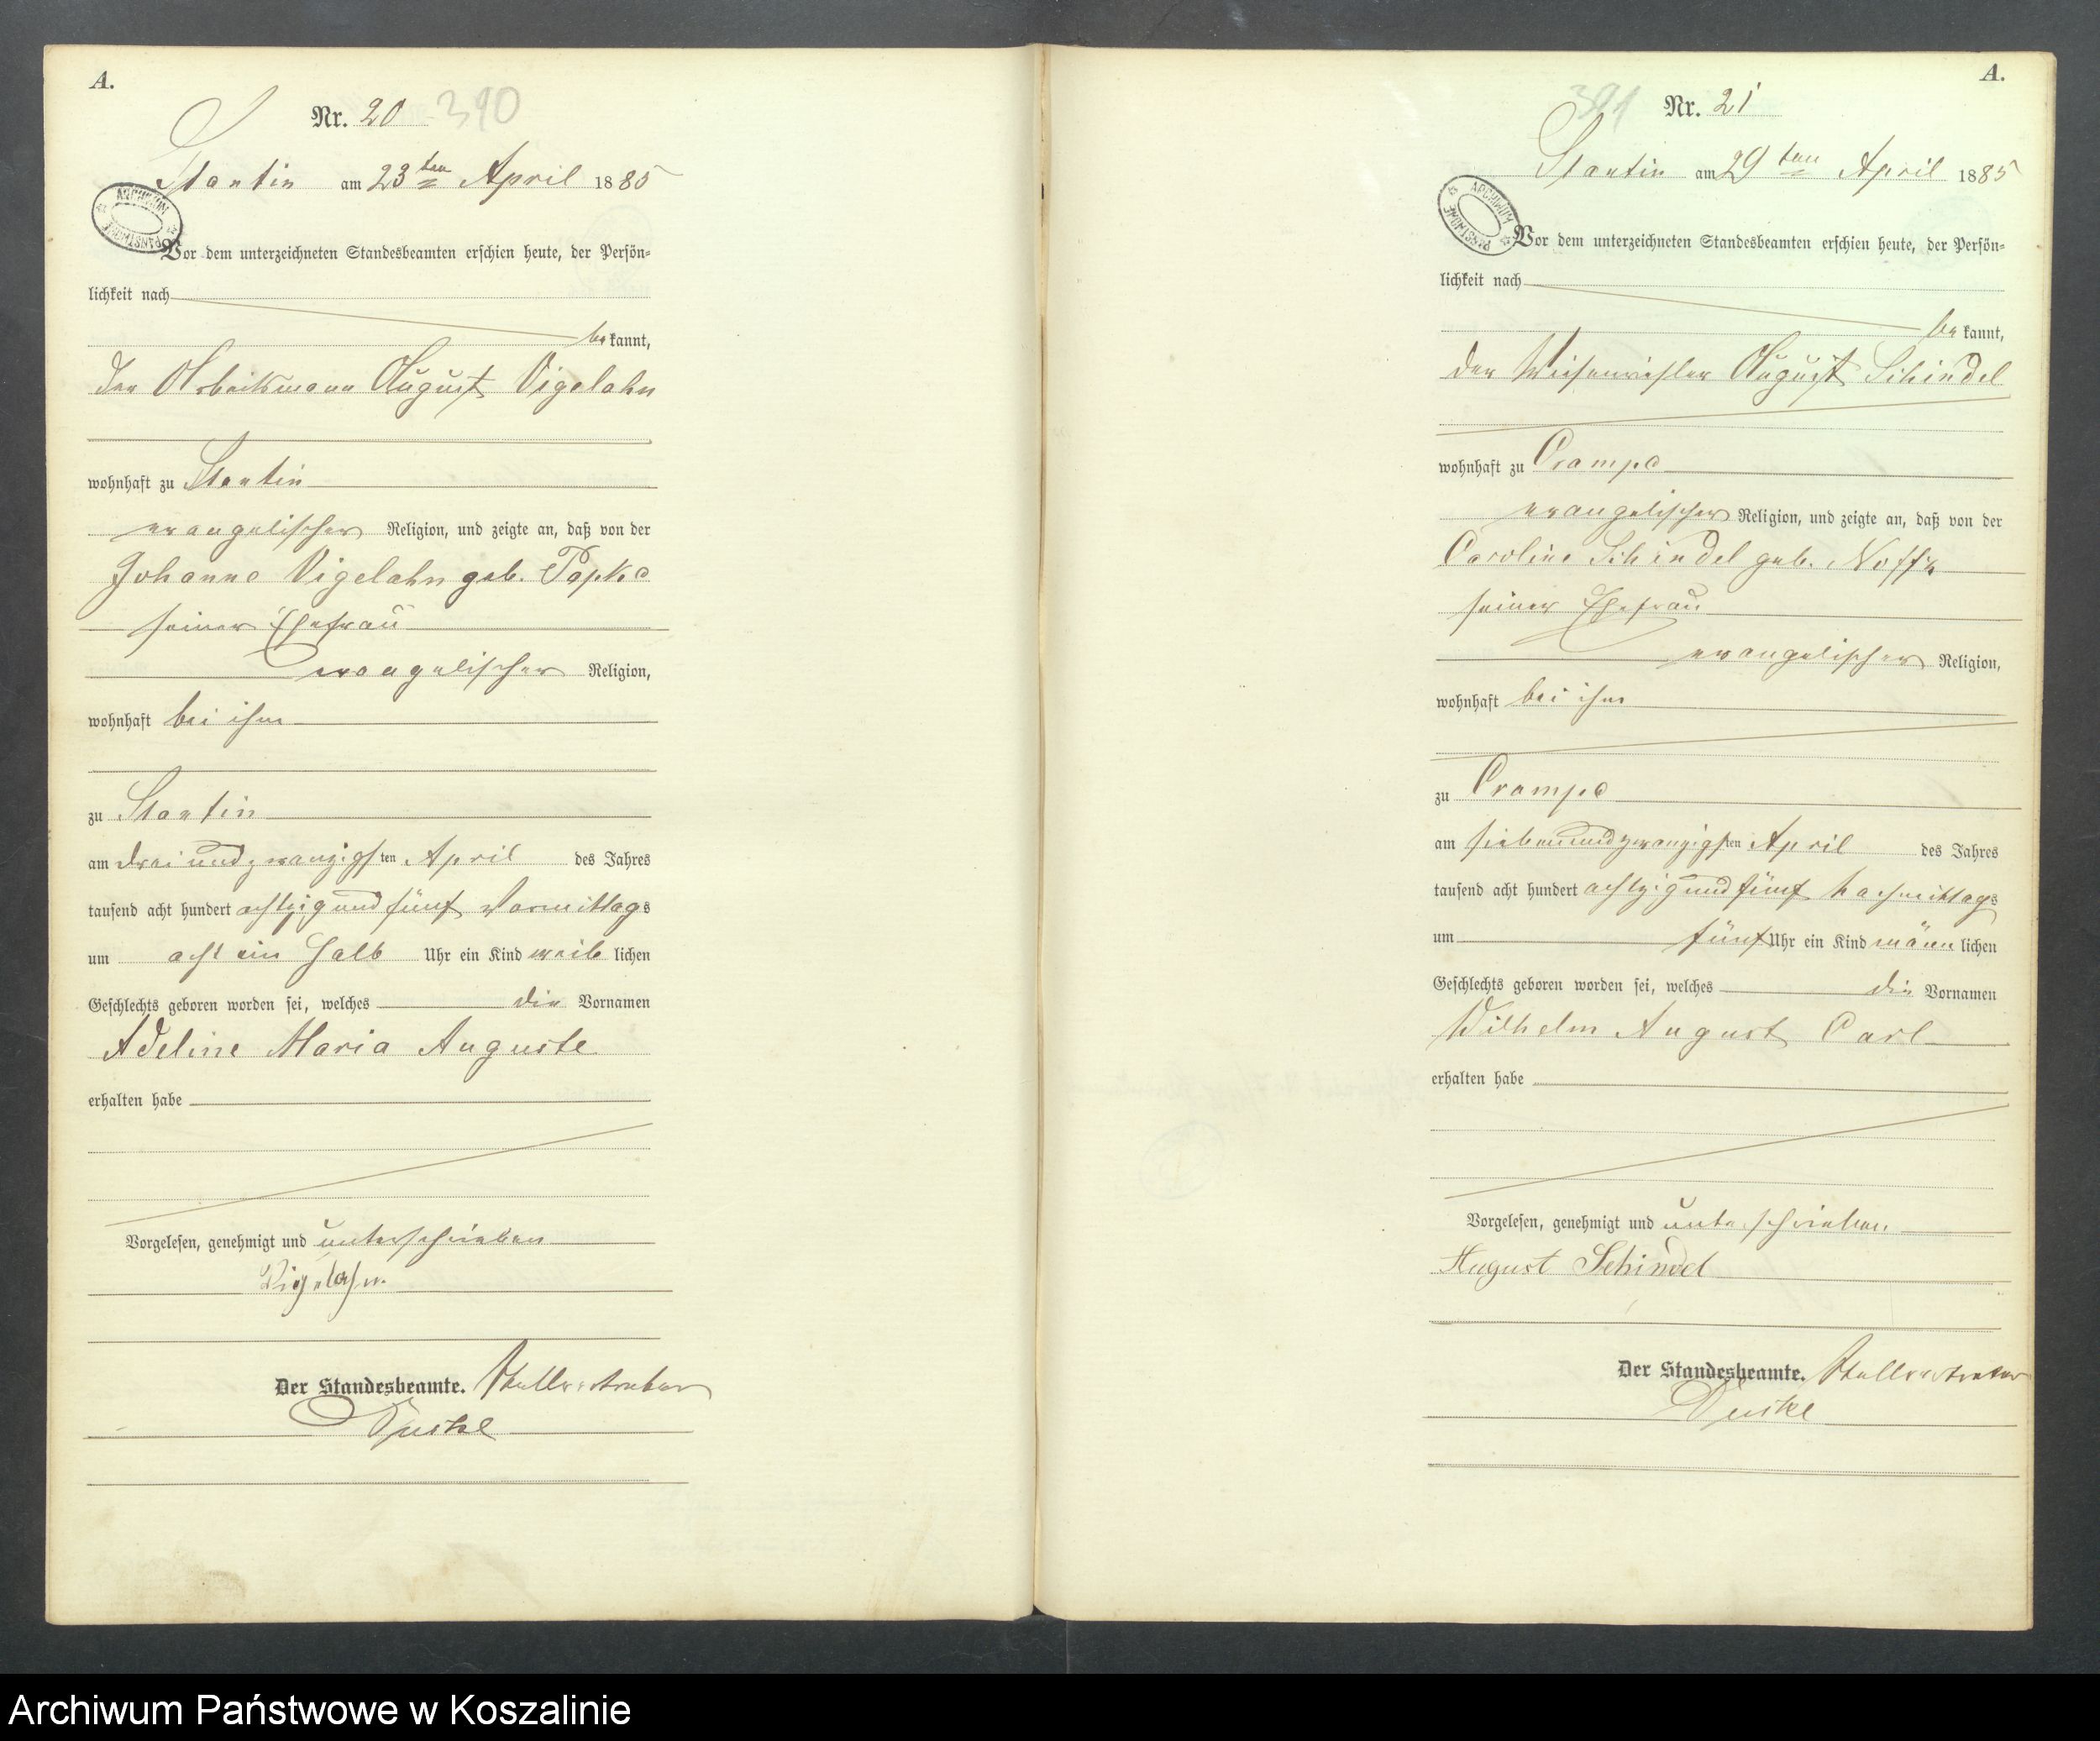 A.
Nr. 20 390
Stantin am 23ten April 1885
ARCHIWUM PAŃSTWOWE
Vor dem unterzeichneten Standesbeamten erschien heute, der Persön-
lichkeit nach
bekannt,
der Arbeitsmann August Vigelahn
wohnhaft zu Stantin
evangelischer Religion, und zeigte an, daß von der
Johanne Vigelahn geb. Papke
seiner Ehefrau
evangelischer Religion,
wohnhaft bei ihm
zu Stantin
am dreiundzwanzigsten April des Jahres
tausend acht hundert achtzig und fünf Vormittags
um acht ein halb Uhr ein Kind weiblichen
Geschlechts geboren worden sei, welches die Vornamen
Adeline Maria Auguste
erhalten habe
Vorgelesen, genehmigt und unterschrieben
Vigelahn.
Der Standesbeamte. Stellvertreter
A.
391 Nr. 21
Stantin am 29ten April 1885
ARCHIWUM PAŃSTWOWE
Vor dem unterzeichneten Standesbeamten erschien heute, der Persön-
lichkeit nach
bekannt,
der August Schindel
wohnhaft zu Crampe
evangelischer Religion, und zeigte an, daß von der
Caroline Schindel geb. Noffke
seiner Ehefrau
evangelischer Religion,
wohnhaft bei ihm
zu Crampe
am siebenundzwanzigsten April des Jahres
tausend acht hundert achtzig und fünf Nachmittags
um fünf Uhr ein Kind männlichen
Geschlechts geboren worden sei, welches die Vornamen
Wilhelm August Carl
erhalten habe
Vorgelesen, genehmigt und unterschrieben
August Schindel
Der Standesbeamte. Stellvertreter
Archiwum Państwowe w Koszalinie